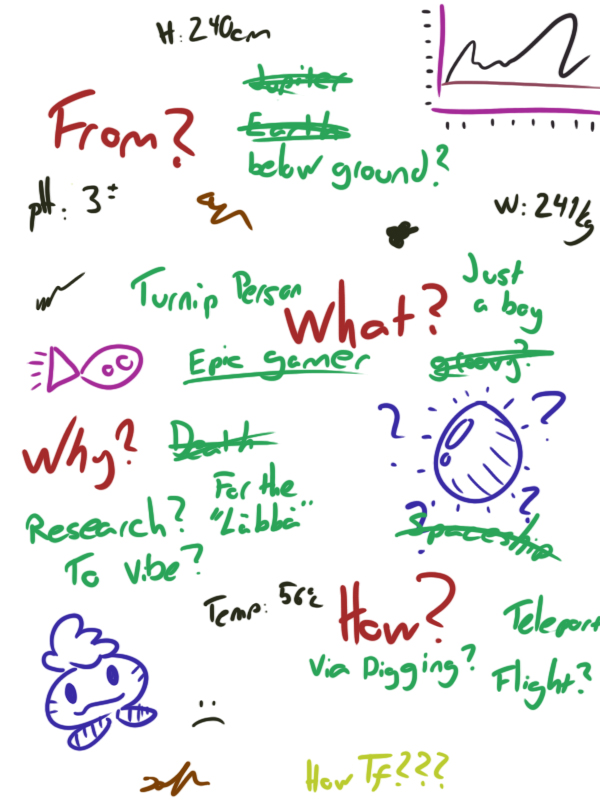 H: 240cm
Jupiter
Earth
From?
below ground?
pH: 3±
W: 241kg
Turnip Person
What?
Just
a boy
Epic gamer
groovy?
Why?
Death
For the
"Läbbä"
Research?
To vibe?
Spaceship
Temp: 56°c
How?
Teleport
Via Digging?
Flight?
How Tf???